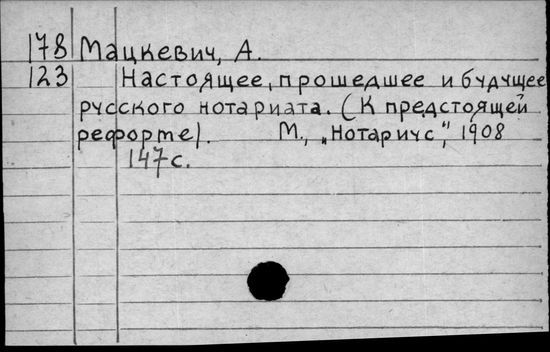 178 Мацкевич, А.
123 Настоящее, прошедшее и будущее
русского нотариата. (К предстоящей
реформе). М., „Нотариус", 1908
147 с.